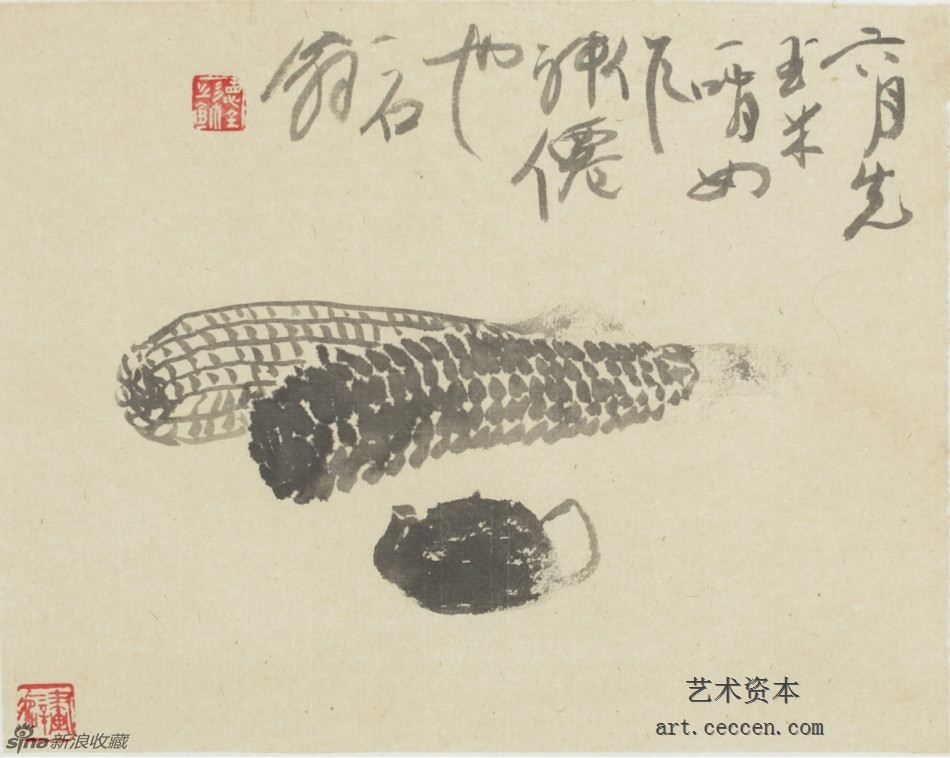 六月先
玉米
啃如
作
神僊
也
石
翁
艺术资本
art.ceccen.com
sina新浪收藏